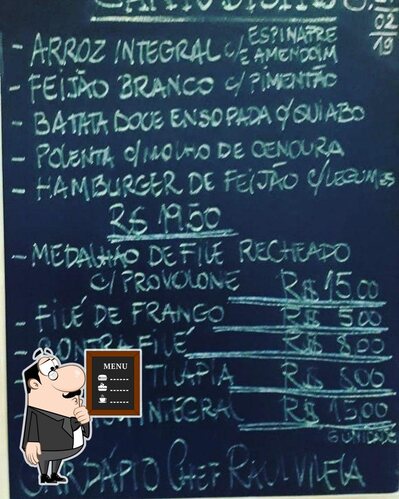 02
19
- ARROZ INTEGRAL C/ ESPINAFRE
E AMENDOIM
- FEIJÃO BRANCO C/ PIMENTÃO
- BATATA DOCE ENSOPADA C/ QUIABO
- POLENTA C/ MOLHO DE CENOURA
- HAMBURGER DE FEIJÃO C/ LEGUMES
R$ 19,50
- MEDALHÃO DE FILÉ RECHEADO
C/ PROVOLONE R$ 15,00
- FILÉ DE FRANGO R$ 5,00
FILÉ R$ 8,00
TILÁPIA R$ 8,00
INTEGRAL R$ 15,00
6 UNIDADE
CARDÁPIO CHEF RAUL VILELA
MENU